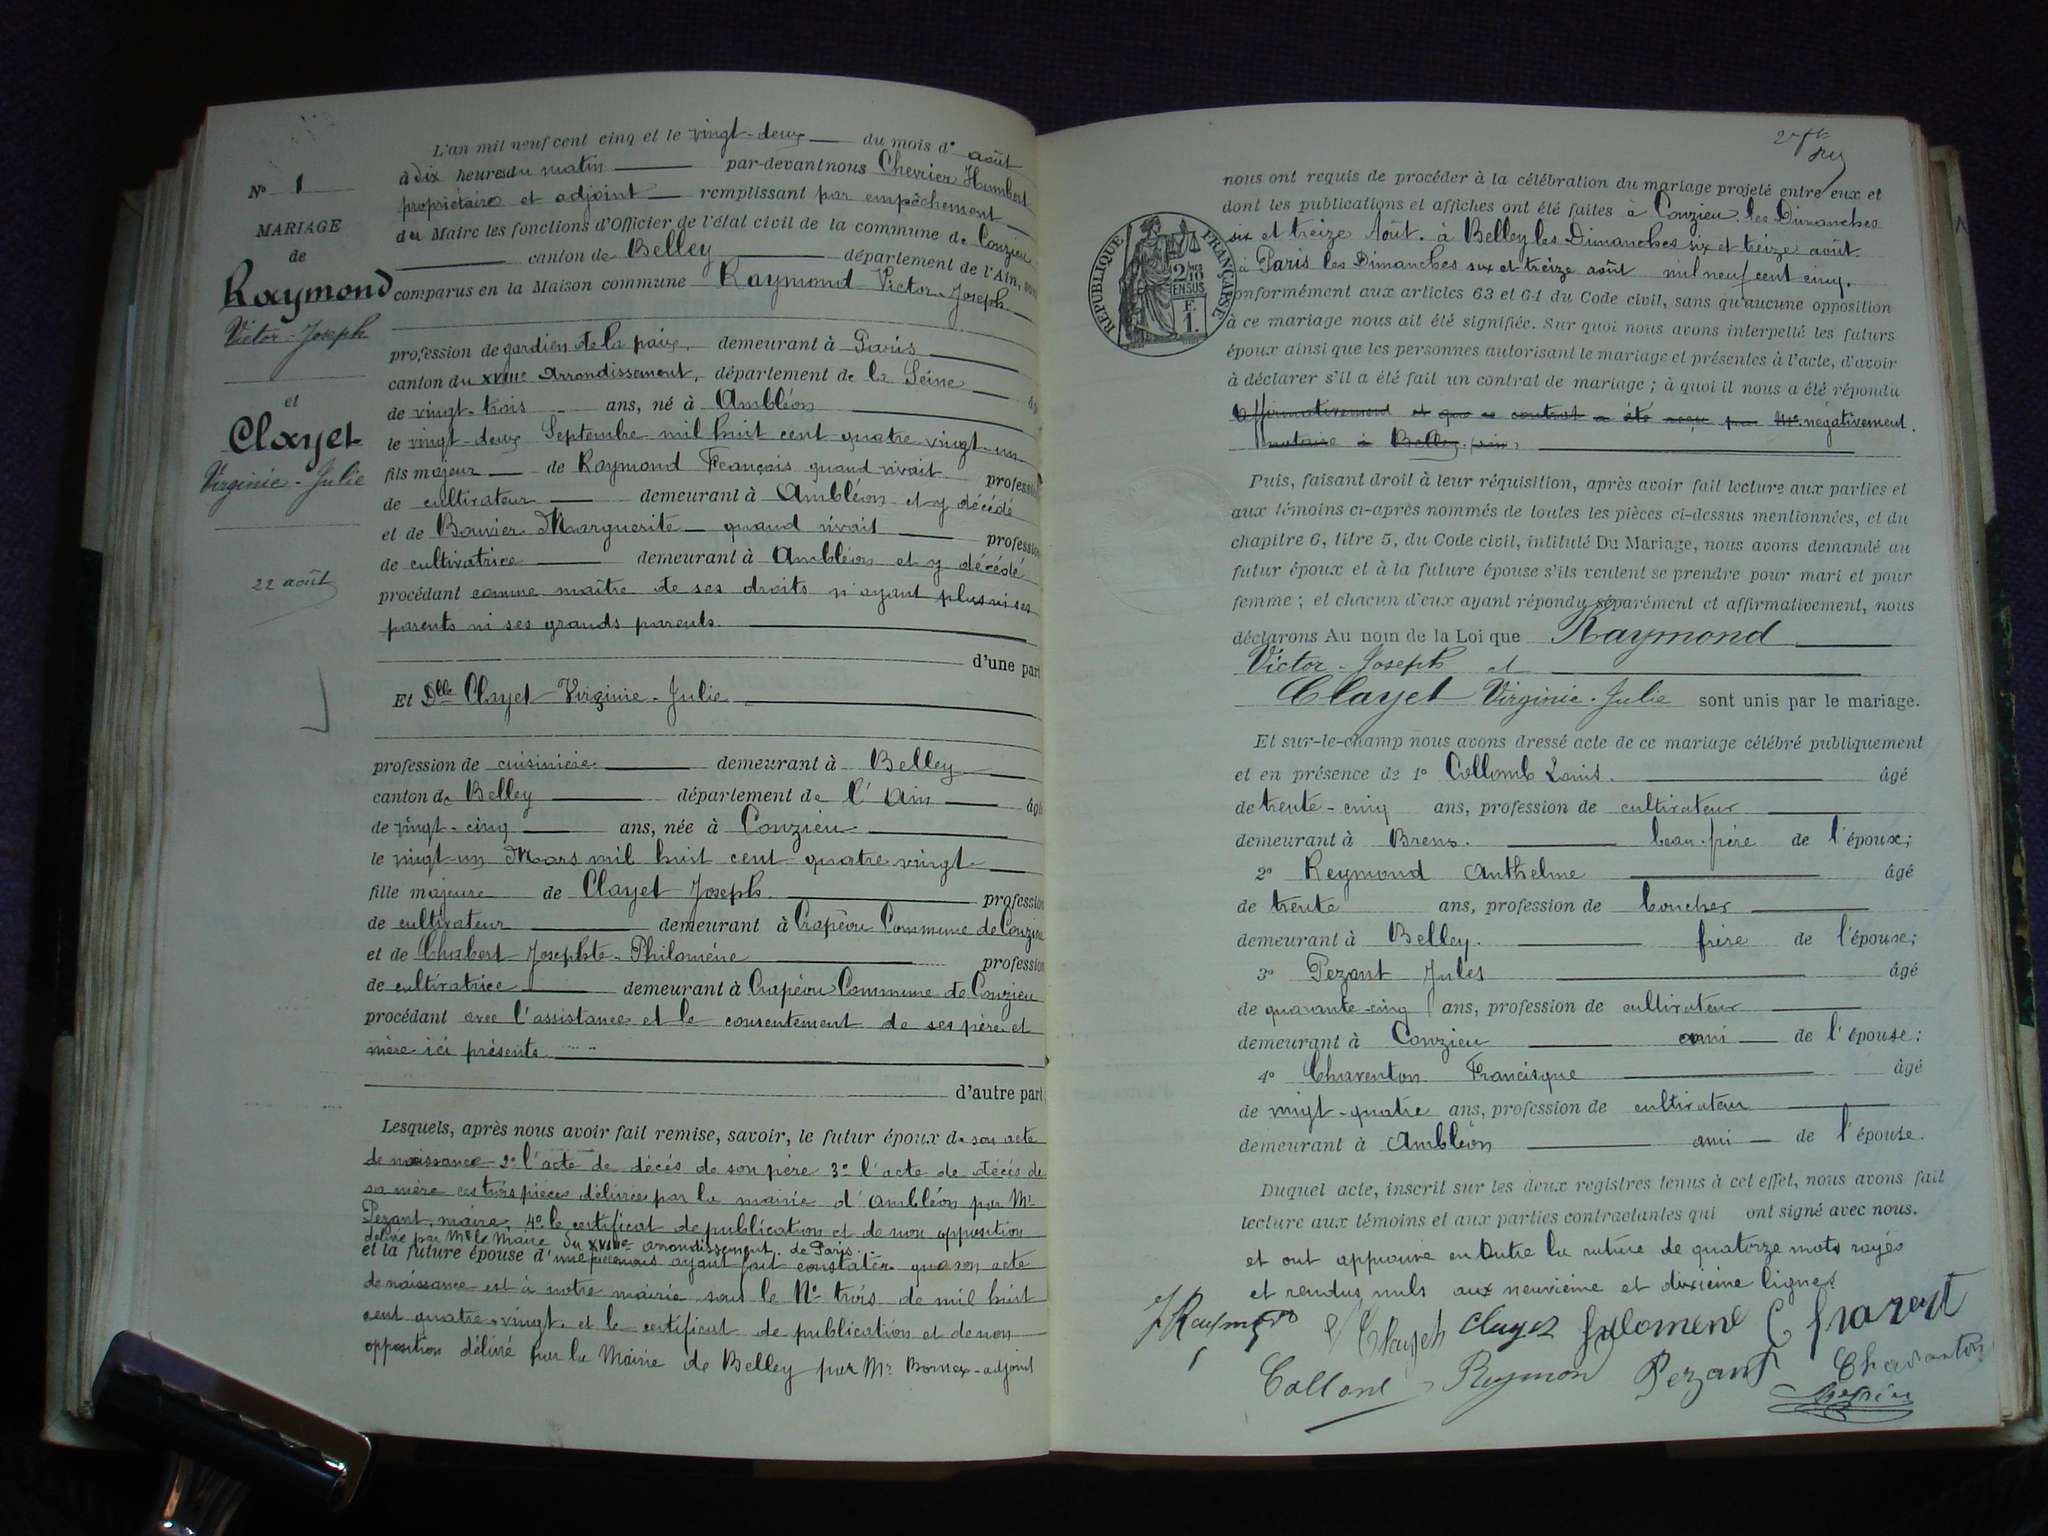 L'an mil neuf cent cinq et le vingt-deux du mois d' août
à dix heures du matin par-devant nous Chevrier Humbert
propriétaire et adjoint remplissant par empêchement
du Maire les fonctions d'Officier de l'état civil de la commune de Conzieu
canton de Belley département de l'Ain, sont
comparus en la Maison commune Raymond Victor-Joseph
N° 1
MARIAGE
de
Raymond
Victor-Joseph
et
Clayet
Virginie-Julie
22 août
profession de gardien de la paix, demeurant à Paris
canton du XVIIIe Arrondissement, département de la Seine âgé
de vingt-trois ans, né à Ambléon
le vingt-deux Septembre mil huit cent quatre vingt-un
fils majeur de Raymond François quand vivait profession
de cultivateur demeurant à Ambléon et y décédé
et de Bouvier Marguerite quand vivait profession
de cultivatrice demeurant à Ambléon et y décédée
procédant comme maître de ses droits n'ayant plus ni ses
parents ni ses grands parents.
d'une part
Et Dlle Clayet Virginie-Julie
profession de cuisinière demeurant à Belley
canton de Belley département de l'Ain âgé
de vingt-cinq ans, née à Conzieu
le vingt-un Mars mil huit cent quatre vingt
fille majeure de Clayet Joseph profession
de cultivateur demeurant à Crapéou Commune de Conzieu
et de Chabert Josephte-Philomène profession
de cultivatrice demeurant à Crapéou Commune de Conzieu
procédant avec l'assistance et le consentement de ses père et
mère ici présents
d'autre part;
Lesquels, après nous avoir fait remise, savoir, le futur époux de son acte
de naissance 2° l'acte de décès de son père 3° l'acte de décès de
sa mère ces trois pièces délivrées par la mairie d'Ambléon par Mr
Pezant, maire, 4° le certificat de publication et de non opposition
délivré par Mr le Maire du XVIIIe arrondissement de Paris.
et la future épouse d' ayant fait constater que son acte
de naissance est à notre mairie sous le N° trois de mil huit
cent quatre-vingt et le certificat de publication et de non
opposition délivré par la Mairie de Belley par Mr Bornex-adjoint
nous ont requis de procéder à la célébration du mariage projeté entre eux et
dont les publications et affiches ont été faites à Conzieu les Dimanches
six et treize Août. à Belley les Dimanches six et treize août.
à Paris les Dimanches six et treize août mil neuf cent cinq.
conformément aux articles 63 et 64 du Code civil, sans qu'aucune opposition
à ce mariage nous ait été signifiée. Sur quoi nous avons interpellé les futurs
époux ainsi que les personnes autorisant le mariage et présentes à l'acte, d'avoir
à déclarer s'il a été fait un contrat de mariage; à quoi il nous a été répondu
affirmativement et que ce contrat a été reçu par Me négativement.
notaire à Belley (ain)
RÉPUBLIQUE FRANÇAISE
2/10 EN SUS
F.
1.
Puis, faisant droit à leur réquisition, après avoir fait lecture aux parties et
aux témoins ci-après nommés de toutes les pièces ci-dessus mentionnées, et du
chapitre 6, titre 5, du Code civil, intitulé Du Mariage, nous avons demandé au
futur époux et à la future épouse s'ils veulent se prendre pour mari et pour
femme; et chacun d'eux ayant répondu séparément et affirmativement, nous
déclarons Au nom de la Loi que Raymond
Victor-Joseph et
Clayet Virginie-Julie sont unis par le mariage.
Et sur-le-champ nous avons dressé acte de ce mariage célébré publiquement
et en présence de 1° Collomb Louis. âgé
de trente-cinq ans, profession de cultivateur
demeurant à Brens. beau-frère de l'époux;
2° Reymond Anthelme âgé
de trente ans, profession de boucher
demeurant à Belley. frère de l'épouse;
3° Pezant Jules âgé
de quarante-cinq ans, profession de cultivateur
demeurant à Conzieu ami de l'épouse;
4° Charenton Francisque âgé
de vingt-quatre ans, profession de cultivateur
demeurant à Ambléon ami de l'épouse.
Duquel acte, inscrit sur les deux registres tenus à cet effet, nous avons fait
lecture aux témoins et aux parties contractantes qui ont signé avec nous.
et ont approuvé en outre la rature de quatorze mots rayés
et rendus nuls aux neuvième et dixième lignes.
Clayet Clayet
Reymon Pezant